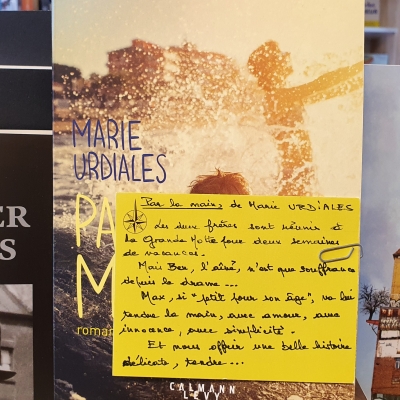 MARIE
URDIALES
PA
M
roman
Par la main, de Marie URDIALES
Les deux frères sont réunis à
la Grande Motte pour deux semaines
de vacances.
Mais Ben, l'aîné, n'est que souffrance
depuis le drame...
Max, si "ptit pour son âge", va lui
tendre la main, avec amour, avec
innocence, avec simplicité.
Et nous offrir une belle histoire
délicate, tendre...
CALMANN
LEVY
ER
S